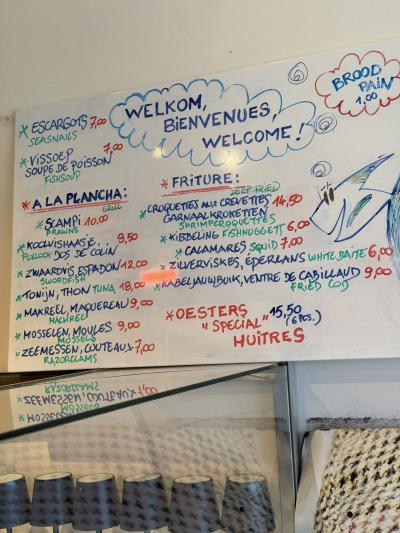 WELKOM,
BIENVENUES,
WELCOME!
BROOD
PAIN
1,00
* ESCARGOTS 7,00
SEASNAILS
* VISSOEP 7,00
SOUPE DE POISSON
FISHSOUP
* A LA PLANCHA:
GRILL
* SCAMPI 10,00
PRAWNS
* KOOLVISHAASJE... 9,50
POLLOCK DOS DE COLIN
* ZWAARDVIS, ESPADON 12,00
SWORDFISH
* TONIJN, THON TUNA 18,00
* MAKREEL, MAQUEREAU 9,00
MACKREL
* MOSSELEN, MOULES 9,00
MOSSELS
* ZEEMESSEN, COUTEAUX 7,00
RAZORCLAMS
* FRITURE:
DEEP FRIED
* CROQUETTES AUX CREVETTES 14,50
GARNAALKROKETTEN
SHRIMPCROQUETTES
* KIBBELING FISHNUGGETS 6,00
* CALAMARES SQUID 7,00
* ZILVERVISKES, ÉPERLANS WHITE BAITE 6,00
* KABELJAUWBUIK, VENTRE DE CABILLAUD 9,00
FRIED COD
* OESTERS 15,50
"SPECIAL" (6 PCS.)
HUÎTRES